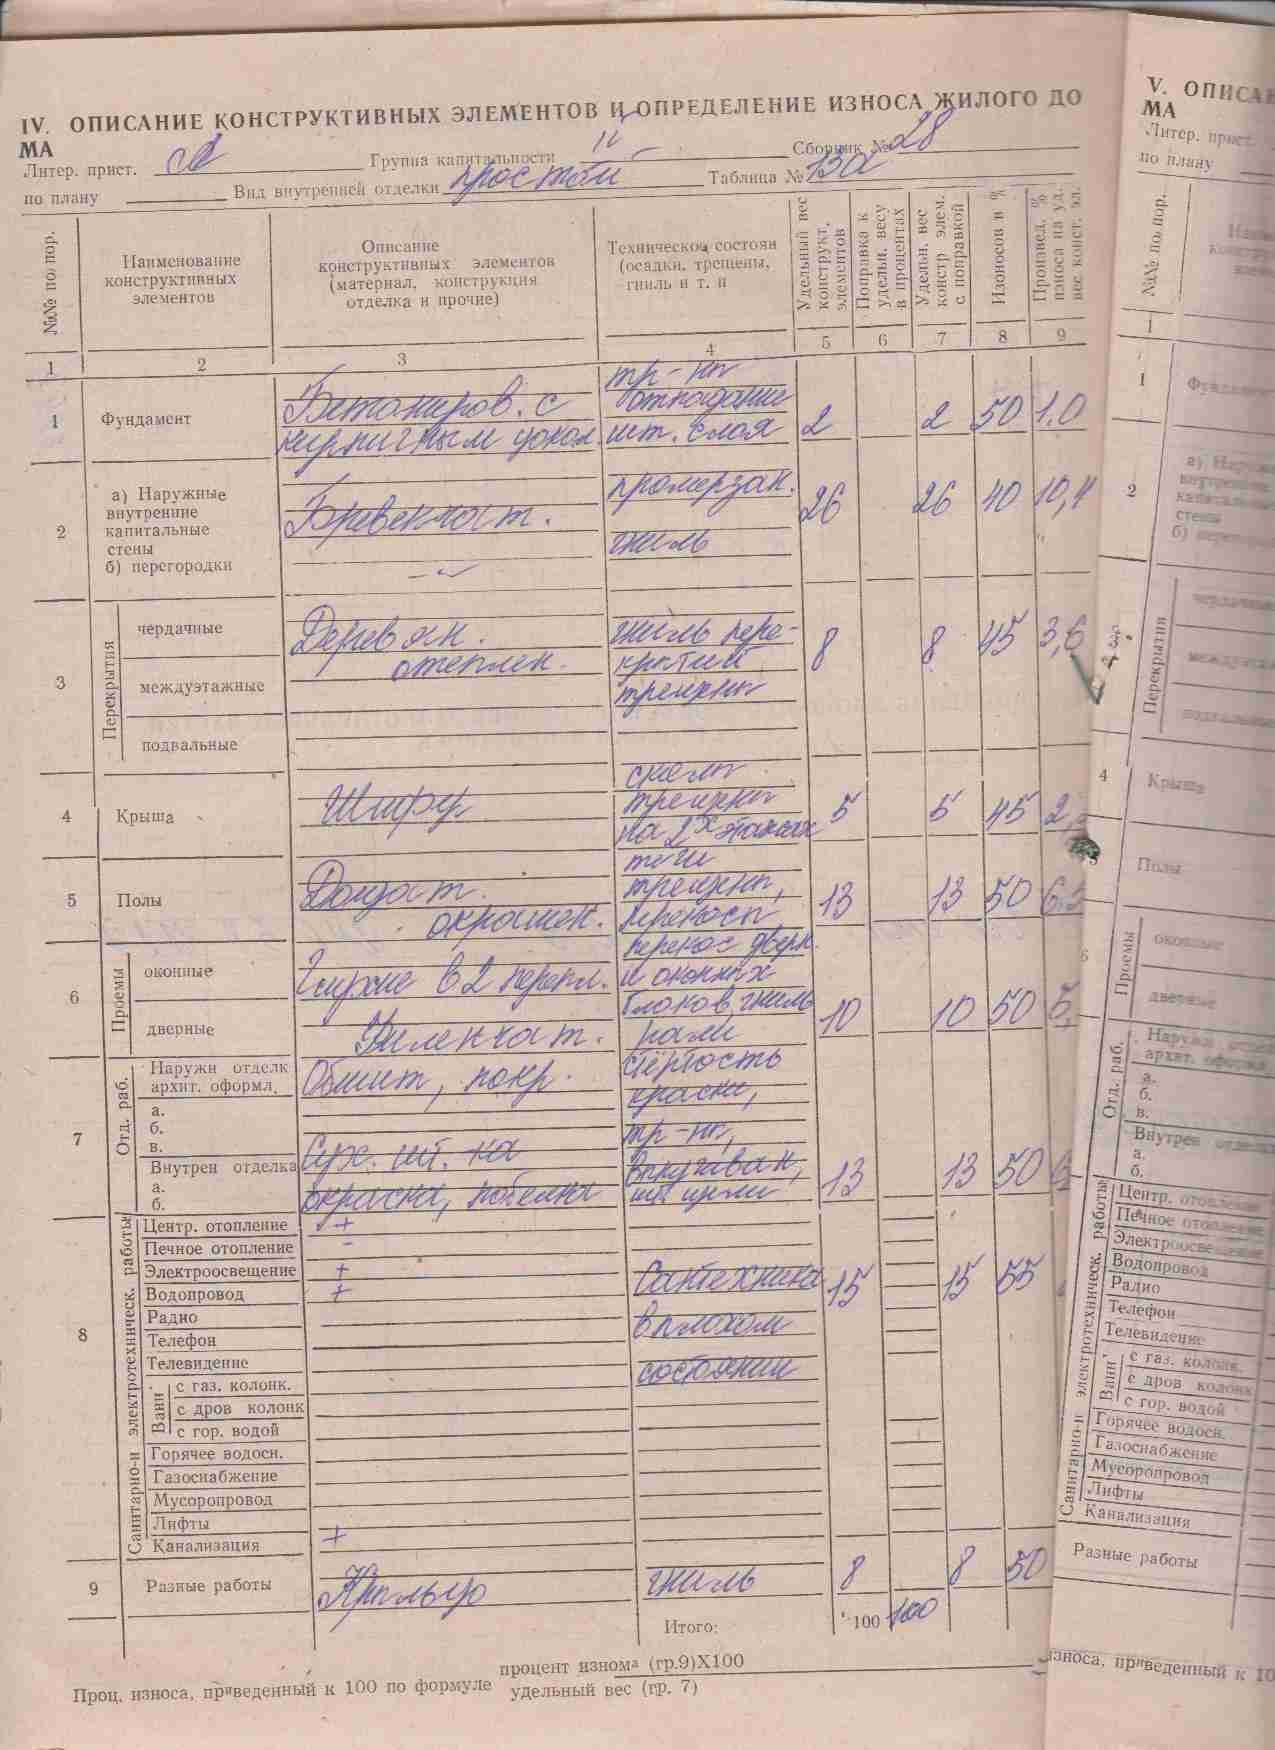 IV. ОПИСАНИЕ КОНСТРУКТИВНЫХ ЭЛЕМЕНТОВ И ОПРЕДЕЛЕНИЕ ИЗНОСА ЖИЛОГО ДО
МА
Литер. прист. А Группа капитальности IV Сборник № 28
по плану Вид внутренней отделки простой Таблица № 13а
№№ по/ пор.
Наименование
конструктивных
элементов
Описание
конструктивных элементов
(материал, конструкция
отделка и прочие)
Техническое состоян
(осадки, трещены,
гниль и т. п
Удельный вес
конструкт,
элементов
Поправка к
удельн. весу
в процентах
Удельн. вес
констр элем.
с поправкой
Изоносов в %
Произвед. %
износа на уд.
вес конст. эл.
1 2 3 4 5 6 7 8 9
1 Фундамент Бетониров. с кирпичным цокол. тр-ны отпадание шт. слоя 2 2 50 1.0
2 а) Наружные
внутренние
капитальные
стены
б) перегородки
Бревенчат. промерзан. гниль 26 26 40 10,4
3 Перекрытия
чердачные
междуэтажные
подвальные
Деревян. отеплен.
гниль пере-
крытий
трещины
8 8 45 3,6
4 Крыша Шифер
сколы
трещины
на 2х этажах
течи
5 5 45
5 Полы Дощат. окрашен.
трещины,
13 13 50
6 Проемы
оконные
дверные
Глухие в 2 перепл.
Филенчат.
перекос дверн.
и оконных
блоков, гниль
10 10 50
7 Отд. раб.
Наружн отделк
архит. оформл.
а.
б.
в.
Обшит, покр.
стёртость
краски,
Внутрен отделка
а.
б.
Сух. шт. ка
окраска, побелка
тр-ны,
выпучиван,
13 13 50
8 Санитарно-и электротехническ. работы
Центр. отопление +
Печное отопление -
Электроосвещение +
Водопровод +
Радио
Телефон
Телевидение
Ванн
с газ. колонк.
с дров колонк
с гор. водой
Горячее водосн.
Газоснабжение
Мусоропровод
Лифты
Канализация +
Сантехника
в плохом
состоянии
15 15 55
9 Разные работы Крыльцо гниль 8 8 50
Итого: 100 100
Проц. износа, приведенный к 100 по формуле
процент изнома (гр.9)Х100
удельный вес (гр. 7)
V. ОПИСАН
МА
Литер. прист.
по плану
№№ по/ пор.
1
1 Фундамент
2 а) Наружн
внутренние
капитальные
стены
б) перегород
Перекрытия
чердачные
междуэтаж
подвальные
4 Крыша
Полы
6 Проемы
оконные
дверные
Отд. раб.
Наружн отделк
архит. оформл
а.
б.
в.
Внутрен отделк
а.
б.
Санитарно-и электротехническ. работы
Центр. отопление
Печное отопление
Электроосвещение
Водопровод
Радио
Телефон
Телевидение
Ванн
с газ. колонк.
с дров колонк
с гор. водой
Горячее водосн.
Газоснабжение
Мусоропровод
Лифты
Канализация
Разные работы
износа, приведенный к 10